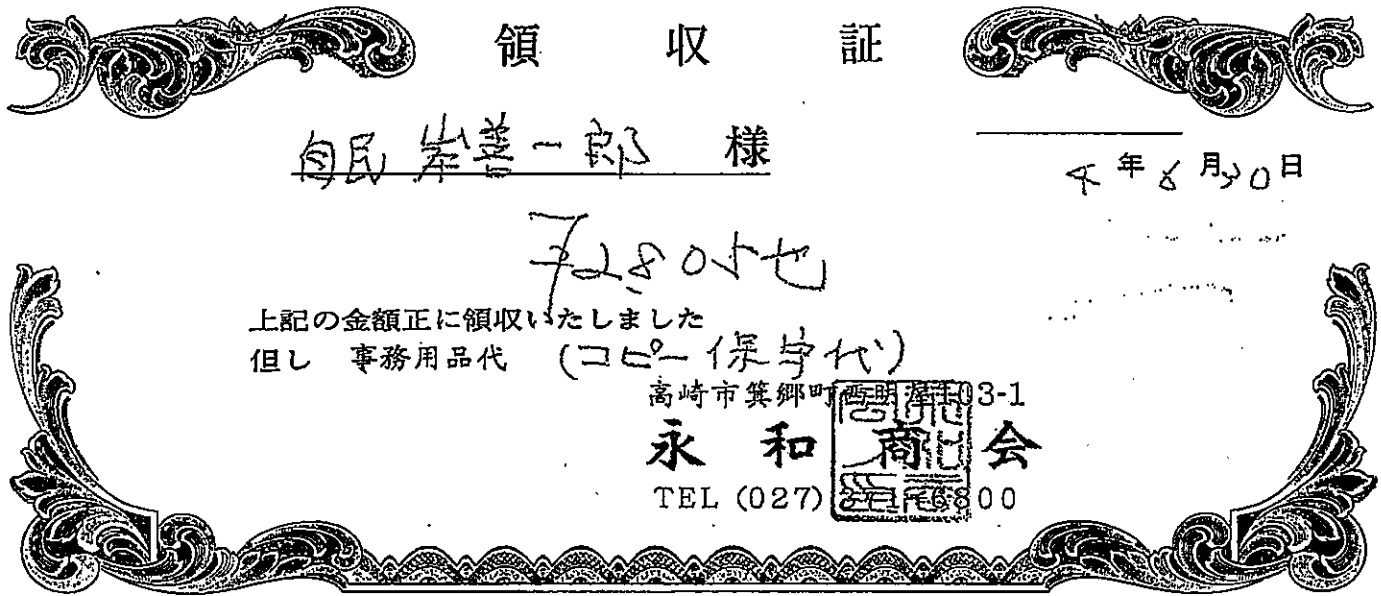 領収証
自民 岸善一郎 様
4年6月30日
¥2805也
上記の金額正に領収いたしました
但し 事務用品代 (コピー保守代)
高崎市箕郷町西明屋103-1
永和商会
TEL (027)